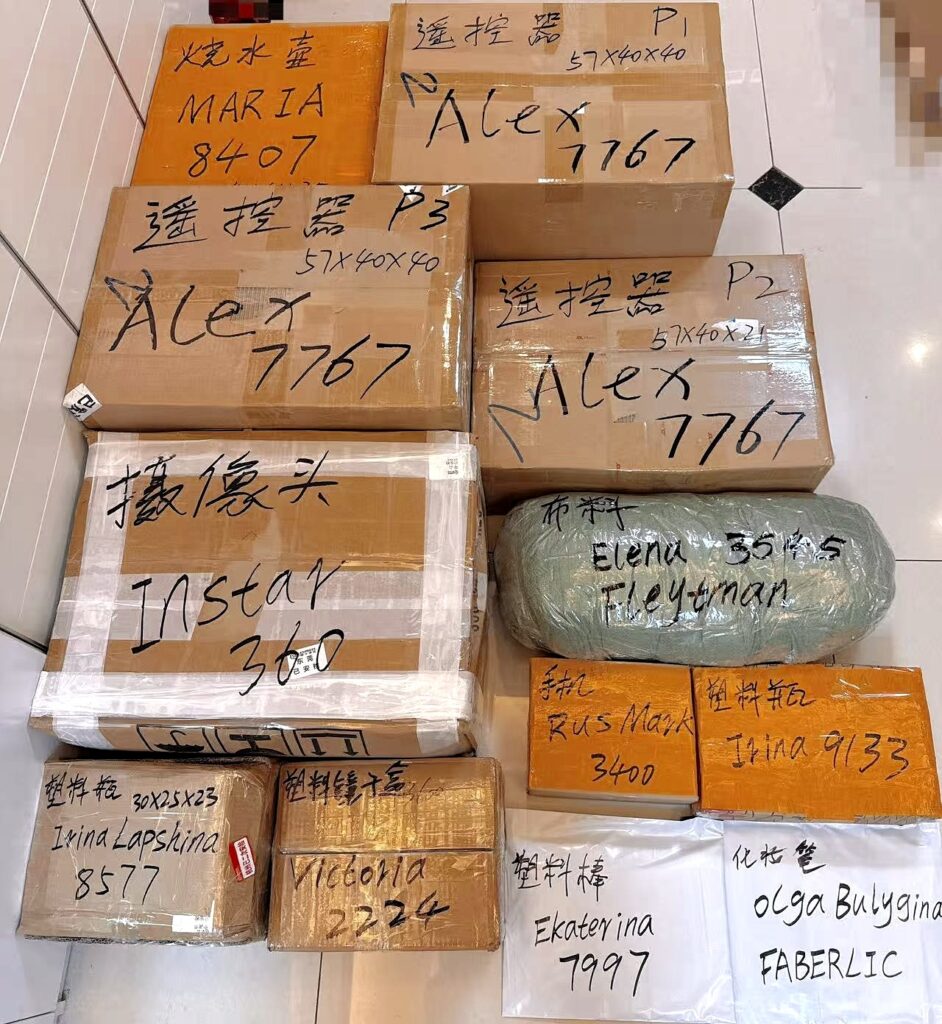 烧水壶
MARIA
8407
遥控器 P1
57X40X40
N
Alex
7767
遥控器 P3
57X40X40
N
Alex
7767
遥控器 P2
57X40X21
N
Alex
7767
摄像头
Instar
360
布料
Elena 3545
Fleytman
手机
Rus Mark
3400
塑料瓶
Irina 9133
塑料瓶 30X25X23
Irina Lapshina
8577
塑料镜子盒
Victoria
2224
塑料棒
Ekaterina
7997
化妆笔
Olga Bulygina
FABERLIC